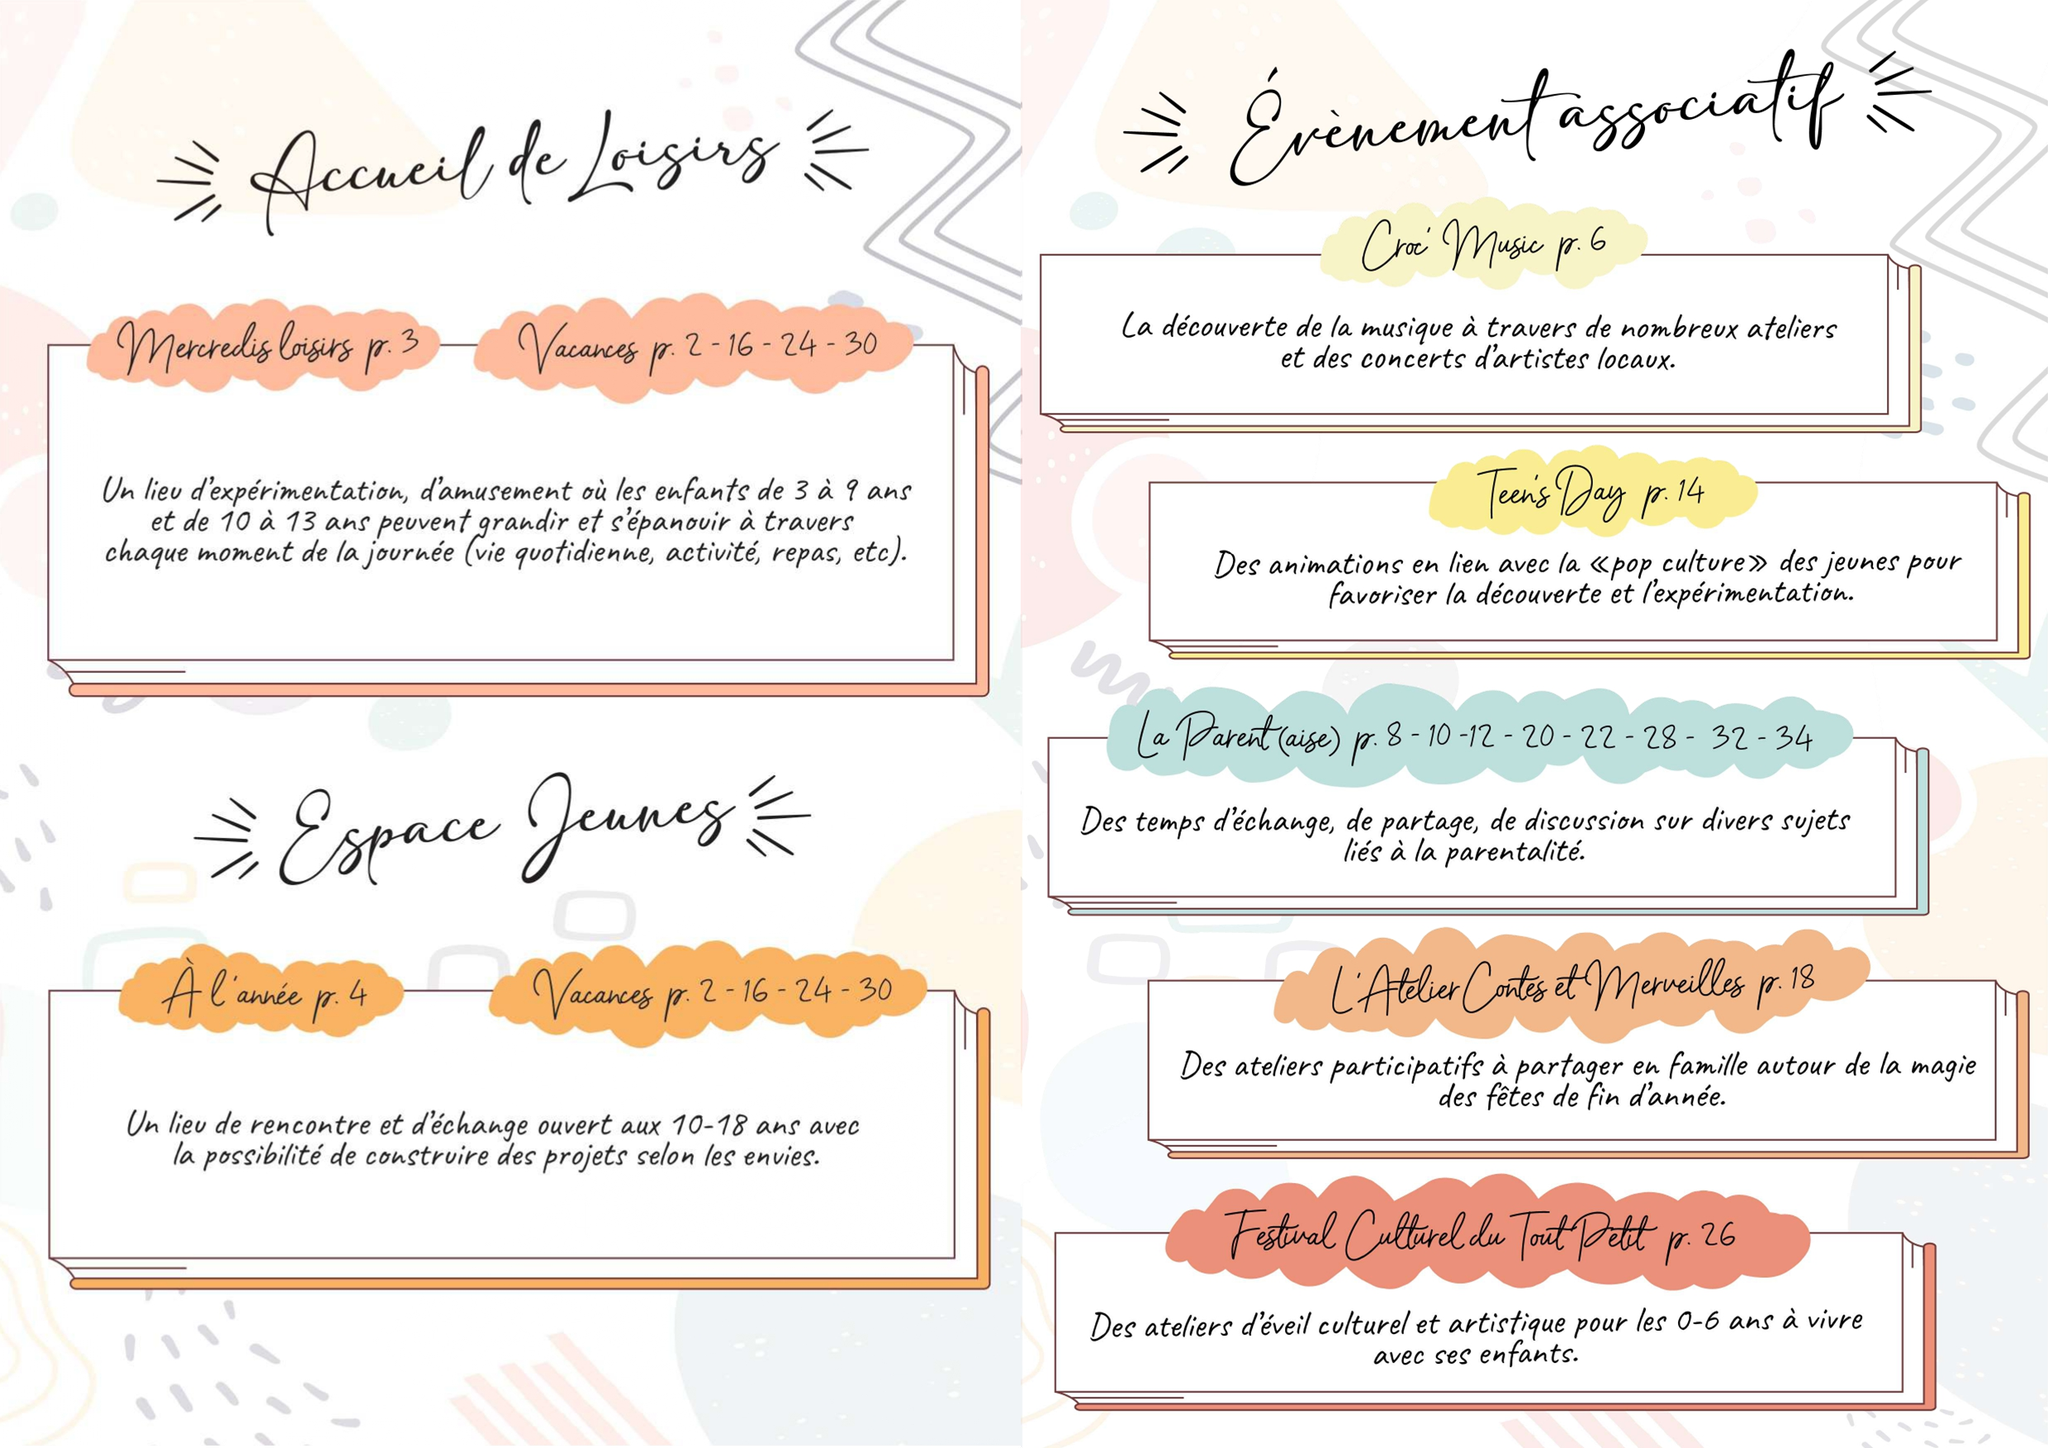 Accueil de Loisirs
Mercredis loisirs p. 3
Vacances p. 2 - 16 - 24 - 30
Un lieu d'expérimentation, d'amusement où les enfants de 3 à 9 ans
et de 10 à 13 ans peuvent grandir et s'épanouir à travers
chaque moment de la journée (vie quotidienne, activité, repas, etc).
Espace Jeunes
À l'année p. 4
Vacances p. 2 - 16 - 24 - 30
Un lieu de rencontre et d'échange ouvert aux 10-18 ans avec
la possibilité de construire des projets selon les envies.
Évènement associatif
Croc' Music p. 6
La découverte de la musique à travers de nombreux ateliers
et des concerts d'artistes locaux.
Teen's Day p. 14
Des animations en lien avec la «pop culture» des jeunes pour
favoriser la découverte et l'expérimentation.
La Parent(aise) p. 8 - 10 -12 - 20 - 22 - 28 - 32 - 34
Des temps d'échange, de partage, de discussion sur divers sujets
liés à la parentalité.
L'Atelier Contes et Merveilles p. 18
Des ateliers participatifs à partager en famille autour de la magie
des fêtes de fin d'année.
Festival Culturel du Tout Petit p. 26
Des ateliers d'éveil culturel et artistique pour les 0-6 ans à vivre
avec ses enfants.